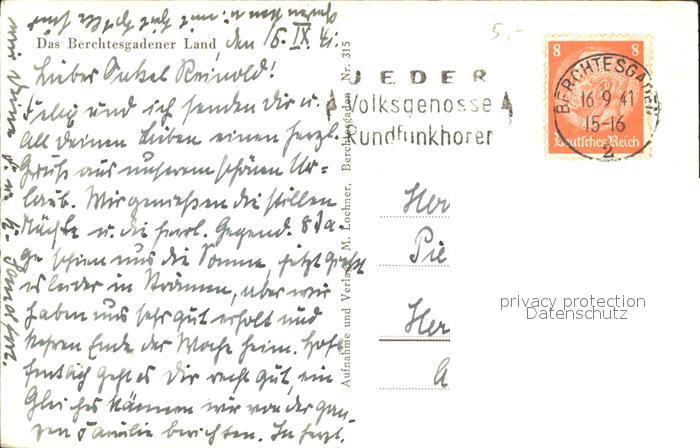 Das Berchtesgadener Land, den 16. IX. 41.
Lieber Onkel Reinold!
und ich senden dir u.
all deinen Lieben einen herzl.
Gruß aus unserem schönen Ur-
laub. Wir genießen die stillen
Nächte u. die herrl. Gegend. 8 Ta-
ge schien uns die Sonne, jetzt gießt
es leider in Strömen, aber wir
haben uns sehr gut erholt und
kehren Ende der Woche heim. Hof-
fentlich geht es Dir recht gut, ein
Gleiches können wir von der gan-
zen Familie berichten. In herzl.
Aufnahme und Verlag: M. Lochner, Berchtesgaden Nr. 315
5.-
JEDER
Volksgenosse
Rundfunkhörer
8 8
Deutsches Reich
BERCHTESGADEN
16.9.41
15-16
2
Her
Pie
Her
A
privacy protection
Datenschutz